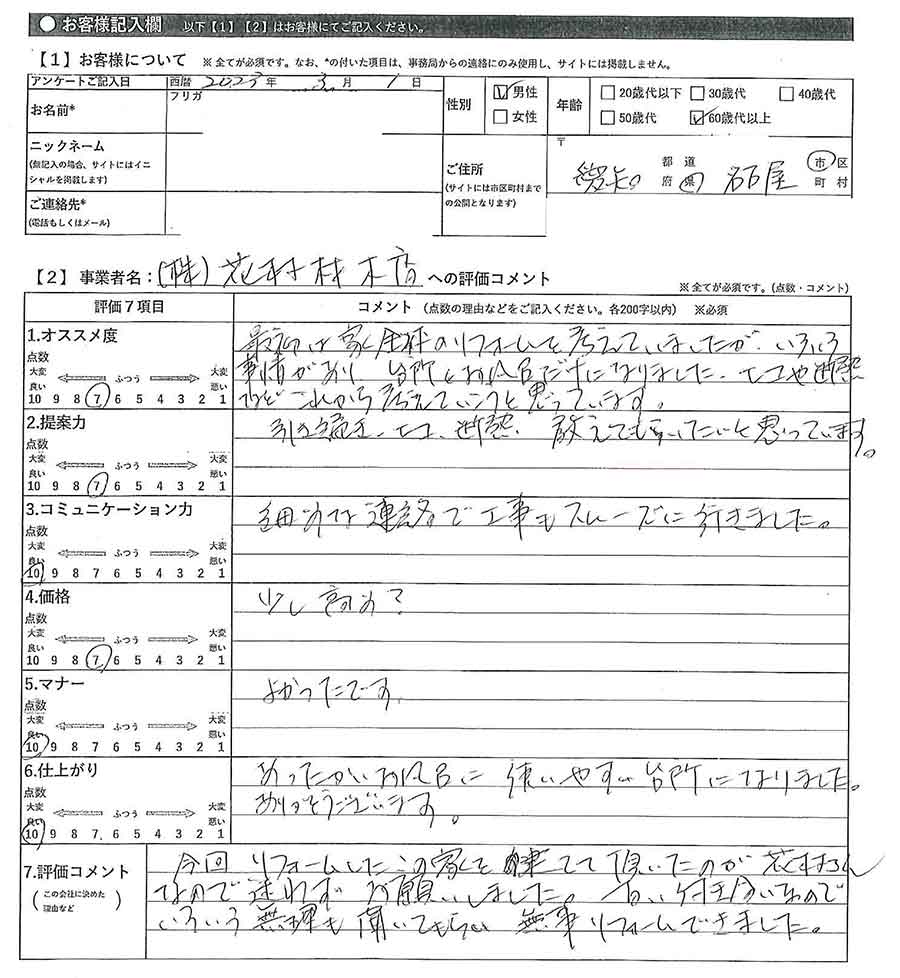 ● お客様記入欄 以下【1】【2】はお客様にてご記入ください。
【1】お客様について ※ 全てが必須です。なお、*の付いた項目は、事務局からの連絡にのみ使用し、サイトには掲載しません。
アンケートご記入日 西暦 2023 年 3 月 1 日
お名前* フリガ
性別 ☑ 男性 □ 女性
年齢 □ 20歳代以下 □ 30歳代 □ 40歳代
□ 50歳代 ☑ 60歳代以上
ニックネーム
(無記入の場合、サイトにはイニ
シャルを掲載します)
ご連絡先*
(電話もしくはメール)
ご住所
(サイトには市区町村まで
の公開となります)
〒
愛知 都 道 府 県 名古屋 市 区 町 村
【2】事業者名：(株)花村材木店 への評価コメント
※ 全てが必須です。(点数・コメント)
評価７項目 コメント （点数の理由などをご記入ください。各200字以内） ※必須
1.オススメ度
点数
大変 ふつう 大変
良い 悪い
10 9 8 7 6 5 4 3 2 1
最初は家全体のリフォームを考えていましたが、いろいろ
事情があり 台所とお風呂だけになりました。七工や断熱
などこれから考えていこうと思っています。
2.提案力
点数
大変 ふつう 大変
良い 悪い
10 9 8 7 6 5 4 3 2 1
引き続き、七工、断熱 教えてもらいたいと思っています。
3.コミュニケーション力
点数
大変 ふつう 大変
良い 悪い
10 9 8 7 6 5 4 3 2 1
細めな連絡で工事もスムーズに行きました。
4.価格
点数
大変 ふつう 大変
良い 悪い
10 9 8 7 6 5 4 3 2 1
少し高め？
5.マナー
点数
大変 ふつう 大変
良い 悪い
10 9 8 7 6 5 4 3 2 1
よかったです。
6.仕上がり
点数
大変 ふつう 大変
良い 悪い
10 9 8 7 6 5 4 3 2 1
あったかいお風呂に 使いやすい台所になりました。
ありがとうございます。
7.評価コメント
(この会社に決めた
理由など)
今回リフォームしたこの家を建てて頂いたのが花村さん
なので迷わずお願いしました。古い付き合いなので
いろいろ無理も聞いてもらい 無事リフォームできました。